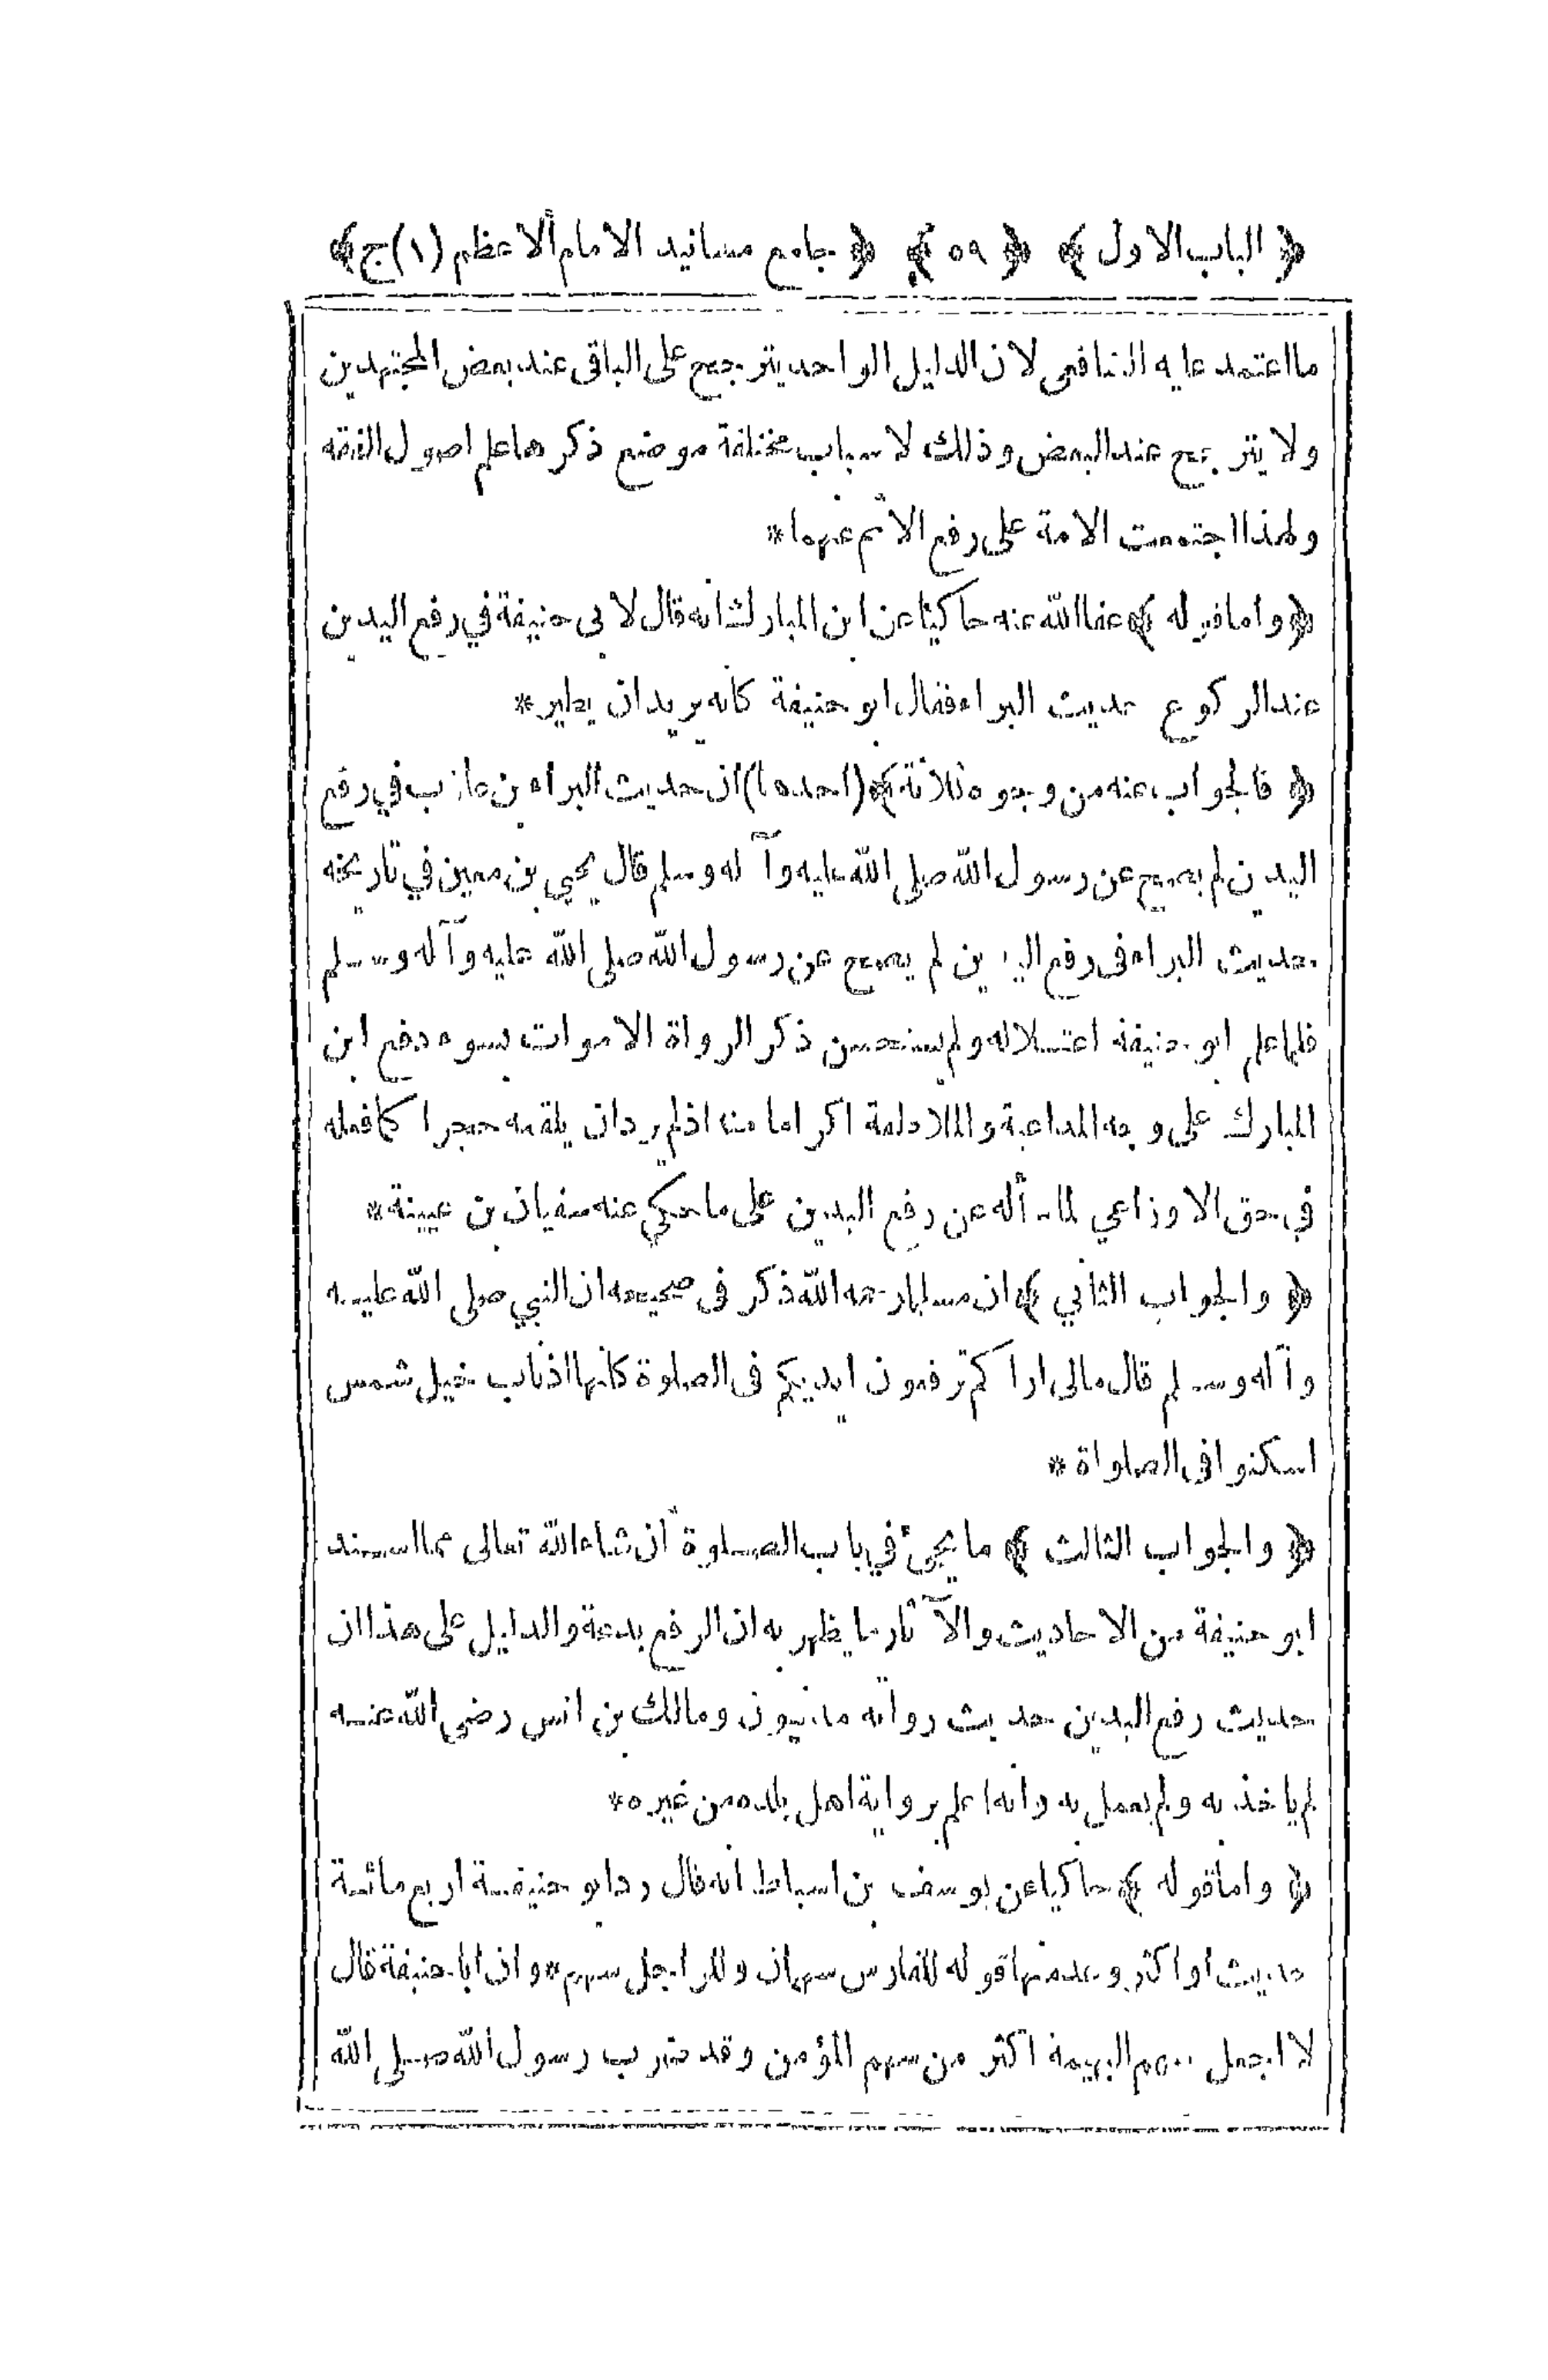 ﴿ الباب الاول ﴾ ﴿ ٥٩ ﴾ ﴿ جامع مسانيد الامام الاعظم (١) ج ﴾
ما اعتمد عليه الشافعى لان الدليل الواحد يترجح على الباقى عند بعض المجتهدين
ولا يترجح عند البعض وذلك لاسباب مختلفة موضع ذكرها علم اصول الفقه
ولهذا اجتمعت الامة على رفع الاثم عنهما*
﴿ واما قوله ﴾ عفا الله عنه حاكيا عن ابن المبارك انه قال لابى حنيفة في رفع اليدين
عند الركوع حديث البراء فقال ابو حنيفة كانه يريد ان يطير*
﴿ فالجواب عنه من وجوه ثلاثة ﴾ (احدها) ان حديث البراء بن عازب في رفع
اليدين لم يصح عن رسول الله صلى الله عليه وآله وسلم قال يحيى بن معين في تاريخه
حديث البراء فى رفع اليدين لم يصح عن رسول الله صلى الله عليه وآله وسلم
فلما علم ابو حنيفة اعتلاله ولم يستحسن ذكر الرواة الاموات بسوء دفع ابن
المبارك على وجه المداعبة والملاطفة اكراما منه اذ لم يرد ان يلقمه حجرا كما فعله
في حق الاوزاعي لما سأله عن رفع اليدين على ما حكي عنه سفيان بن عيينة*
﴿ والجواب الثاني ﴾ ان مسلما رحمه الله ذكر فى صحيحه ان النبي صلى الله عليه
وآله وسلم قال مالى اراكم ترفعون ايديكم فى الصلوة كانها اذناب خيل شمس
اسكنوا فى الصلواة*
﴿ والجواب الثالث ﴾ ما يجئ في باب الصلوة ان شاء الله تعالى مما اسند
ابو حنيفة من الاحاديث والآثار ما يظهر به ان الرفع بدعة والدليل على هذا ان
حديث رفع اليدين حديث رواته مدنيون ومالك بن انس رضى الله عنه
لم ياخذ به ولم يعمل به وانه اعلم برواية اهل بلده من غيره*
﴿ واما قوله ﴾ حاكيا عن يوسف بن اسباط انه قال رد ابو حنيفة اربع مائة
حديث او اكثر وعد منها قوله للفارس سهمان وللراجل سهم* وان ابا حنيفة قال
لا اجعل سهم البهيمة اكثر من سهم المؤمن وقد ضرب رسول الله صلى الله